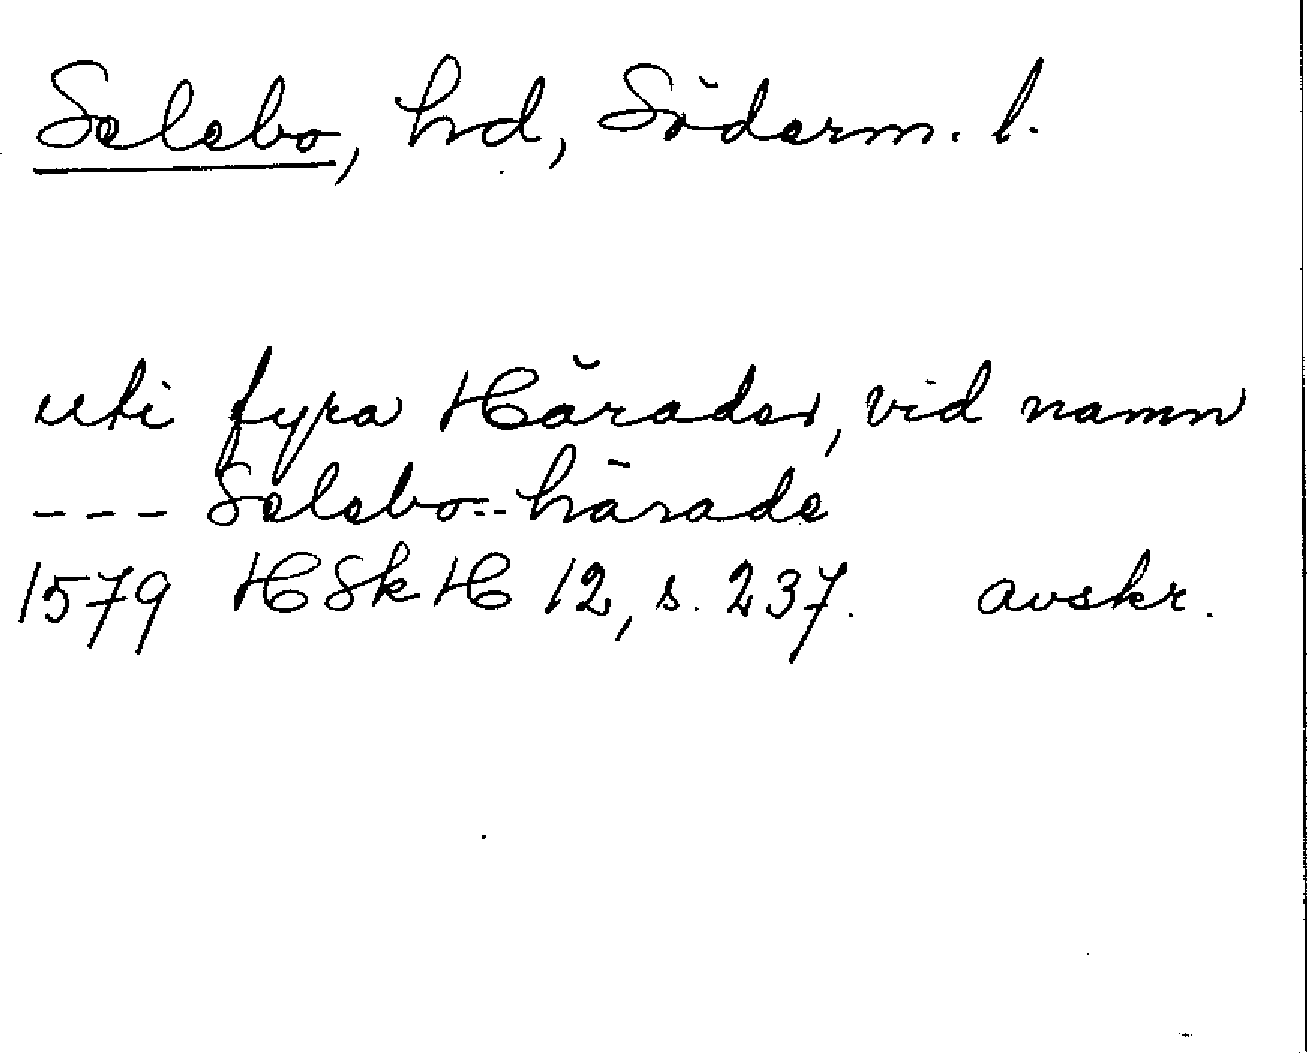 Selebo, hd, Söderm. l.
uti fyra Härader, vid namn
--- Selebo=härade
1579 HSkH 12, s. 237. avskr.